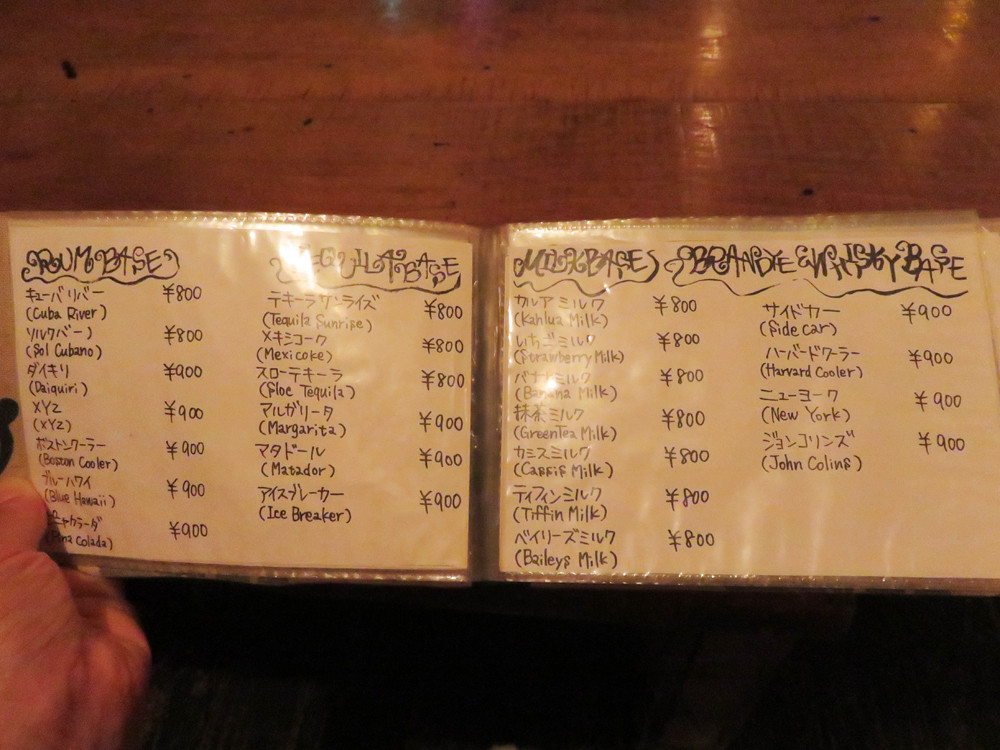 RUM BASE
キューバリバー ¥800
(Cuba River)
ソルクバーノ ¥800
(Sol Cubano)
ダイキリ ¥900
(Daiquiri)
XYZ ¥900
(XYZ)
ボストンクーラー ¥900
(Boston Cooler)
ブルーハワイ ¥900
(Blue Hawaii)
ピニャクラーダ ¥900
(Pina Colada)
TEQUILA BASE
テキーラサンライズ ¥800
(Tequila Sunrise)
メキシコーク ¥800
(Mexicoke)
スローテキーラ ¥800
(Sloe Tequila)
マルガリータ ¥900
(Margarita)
マタドール ¥900
(Matador)
アイスブレーカー ¥900
(Ice Breaker)
MILK BASE
カルアミルク ¥800
(Kahlua Milk)
いちごミルク ¥800
(Strawberry Milk)
バナナミルク ¥800
(Banana Milk)
抹茶ミルク ¥800
(GreenTea Milk)
カシスミルク ¥800
(Cassis Milk)
ティフィンミルク ¥800
(Tiffin Milk)
ベイリーズミルク ¥800
(Baileys Milk)
BRANDY & WHISKY BASE
サイドカー ¥900
(Side car)
ハーバードクーラー ¥900
(Harvard Cooler)
ニューヨーク ¥900
(New York)
ジョンコリンズ ¥900
(John Colins)